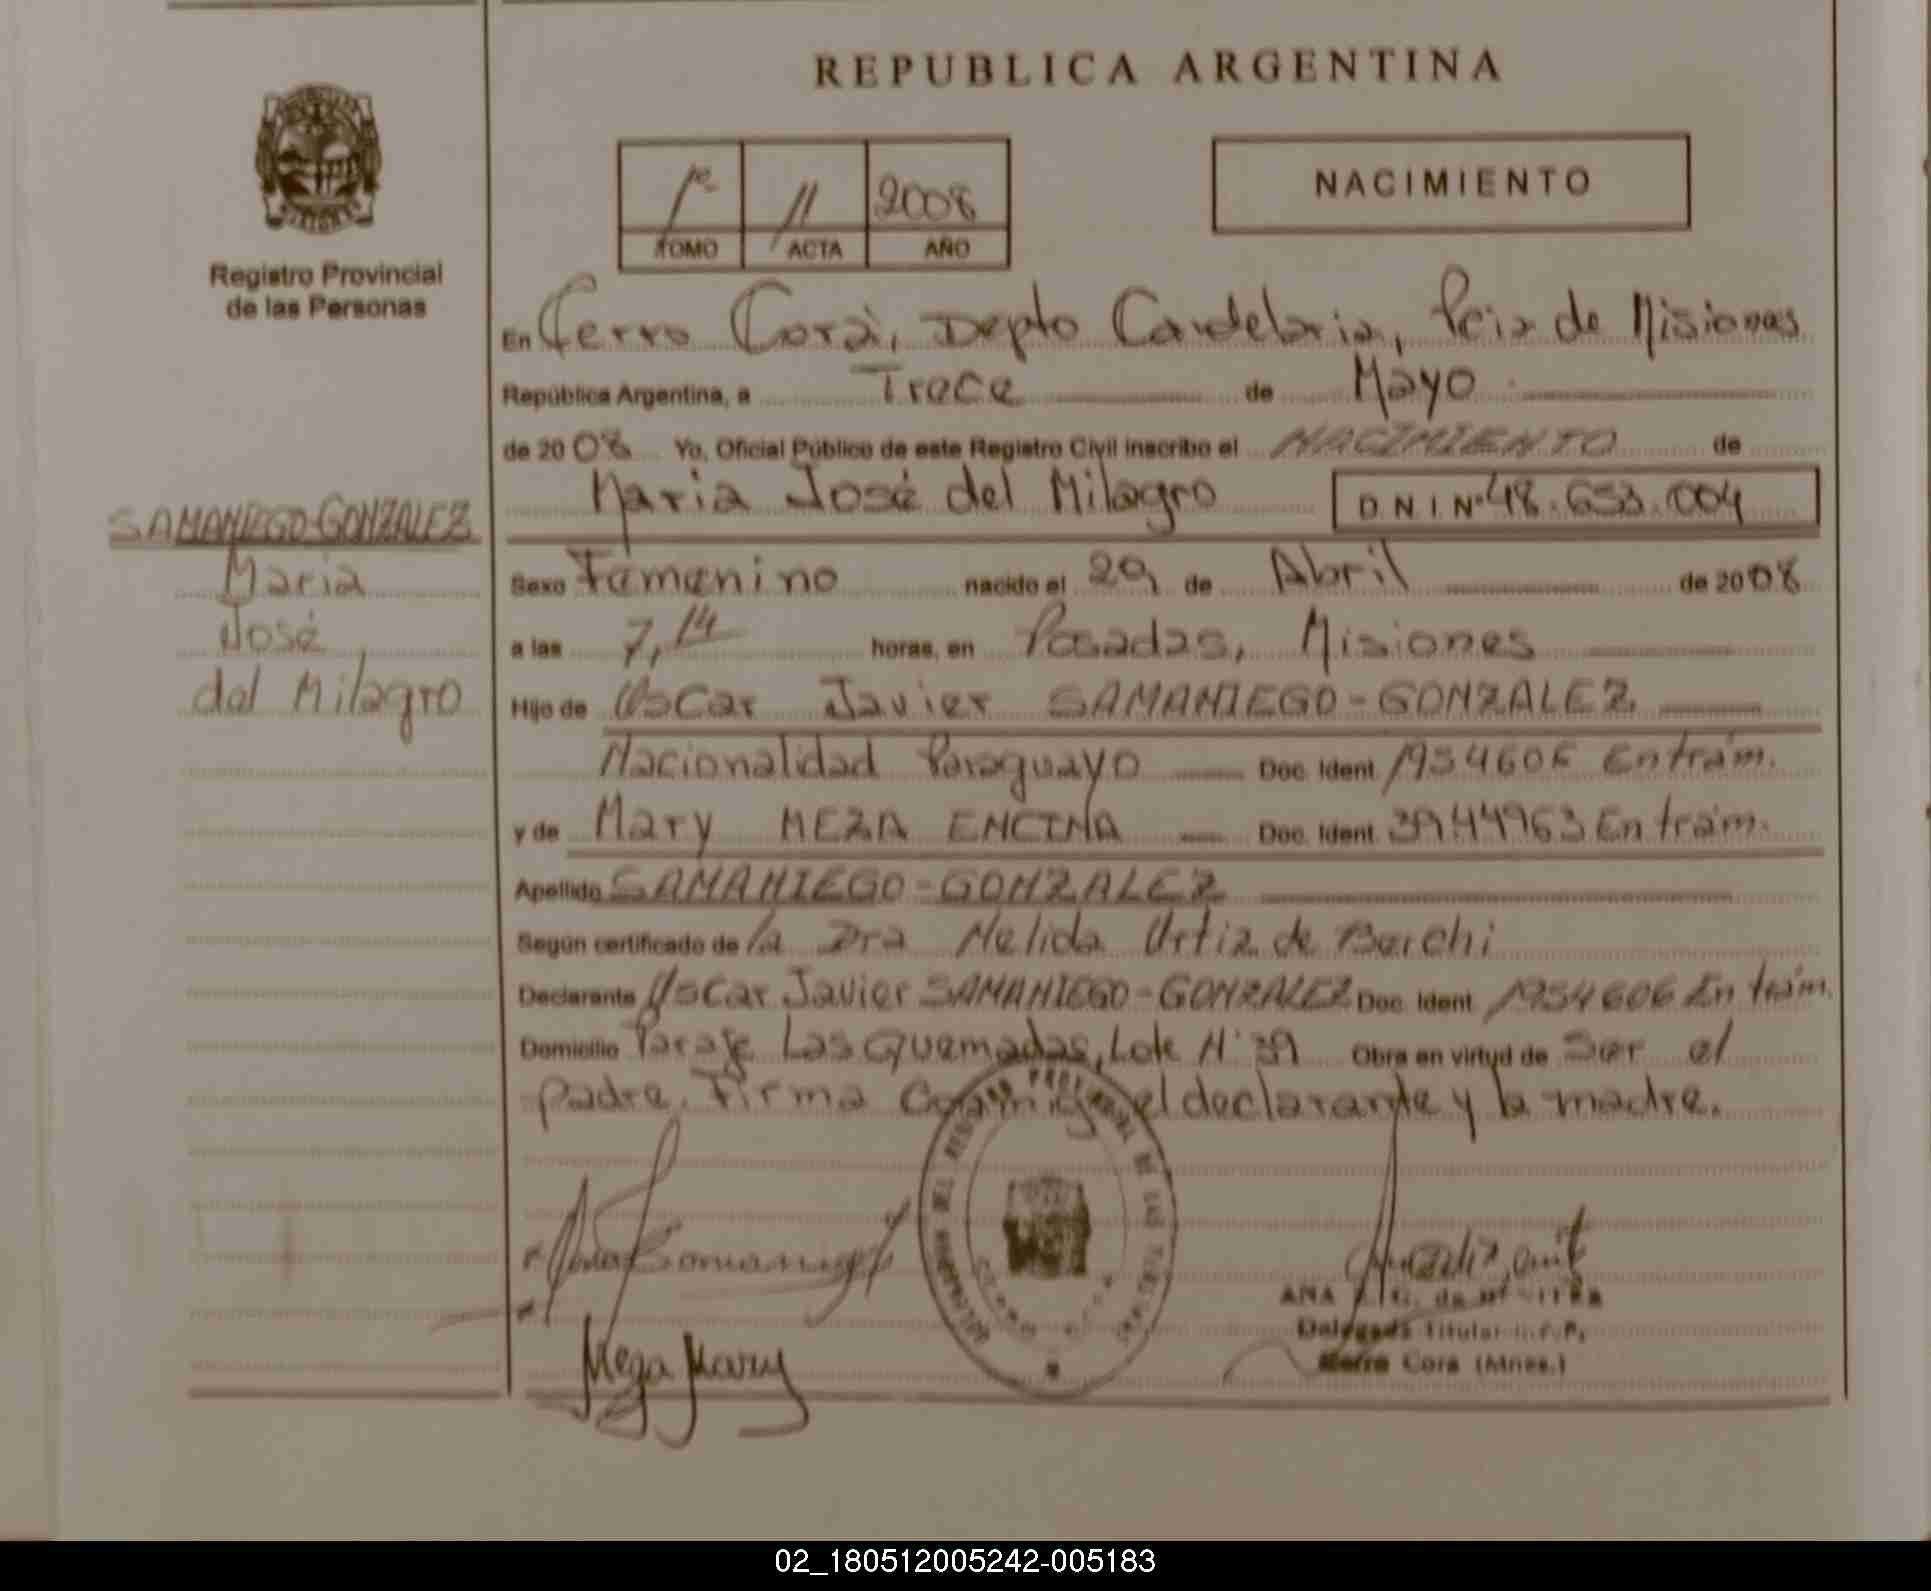 REPUBLICA ARGENTINA
Registro Provincial
de las Personas
1º 11 2008
TOMO ACTA AÑO
NACIMIENTO
En Cerro Corá, Depto Candelaria, Pcia de Misiones
República Argentina, a Trece de Mayo
de 2008 Yo, Oficial Público de este Registro Civil inscribo el NACIMIENTO de
Maria José del Milagro D.N.I. Nº 48.653.004
SAMANIEGO-GONZALEZ
Maria
José
del Milagro
Sexo Femenino nacido el 29 de Abril de 2008
a las 7,14 horas, en Posadas, Misiones
Hijo de Oscar Javier SAMANIEGO-GONZALEZ
Nacionalidad Paraguayo Doc. Ident. 1954606 En trám.
y de Mary MEZA ENCINA Doc. Ident. 3944963 En trám.
Apellido SAMANIEGO-GONZALEZ
Según certificado de la Dra Nelida Ortiz de
Declarante Oscar Javier SAMANIEGO-GONZALEZ Doc. Ident. 1954606 En trám.
Domicilio Paraje Las Quemadas, Lote Nº 39 Obra en virtud de Ser el
padre. Firma Conmigo el declarante y la madre.
Meza Mary
ANA
Delegada Titular
Cerro Cora (Mnes.)
02_180512005242-005183